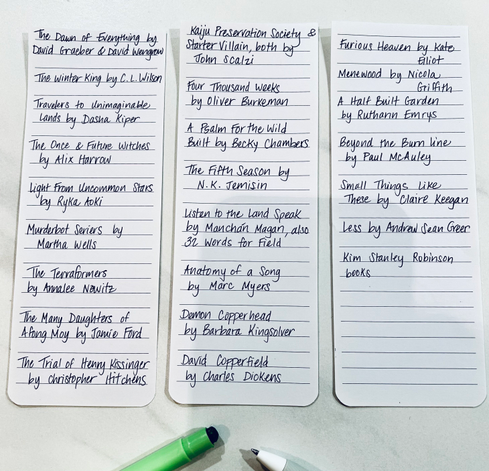 The Dawn of Everything by
David Graeber & David Wengrow
The Winter King by C.L. Wilson
Travelers to Unimaginable
Lands by Dasha Kiper
The Once & Future Witches
by Alix Harrow
Light From Uncommon Stars
by Ryka Aoki
Murderbot Seriers by
Martha Wells
The Terraformers
by Annalee Newitz
The Many Daughters of
Afong Moy by Jamie Ford
The Trial of Henry Kissinger
by Christopher Hitchens
Kaiju Preservation Society &
Starter Villain, both by
John Scalzi
Four Thousand Weeks
by Oliver Burkeman
A Psalm For the Wild
Built by Becky Chambers
The Fifth Season by
N.K. Jemisin
Listen to the Land Speak
by Manchán Magan, also
32 Words for Field
Anatomy of a Song
by Marc Myers
Demon Copperhead
by Barbara Kingsolver
David Copperfield
by Charles Dickens
Furious Heaven by Kate
Elliot
Menewood by Nicola
Griffith
A Half Built Garden
by Ruthann Emrys
Beyond the Burn Line
by Paul McAuley
Small Things Like
These by Claire Keegan
Less by Andrew Sean Greer
Kim Stanley Robinson
books